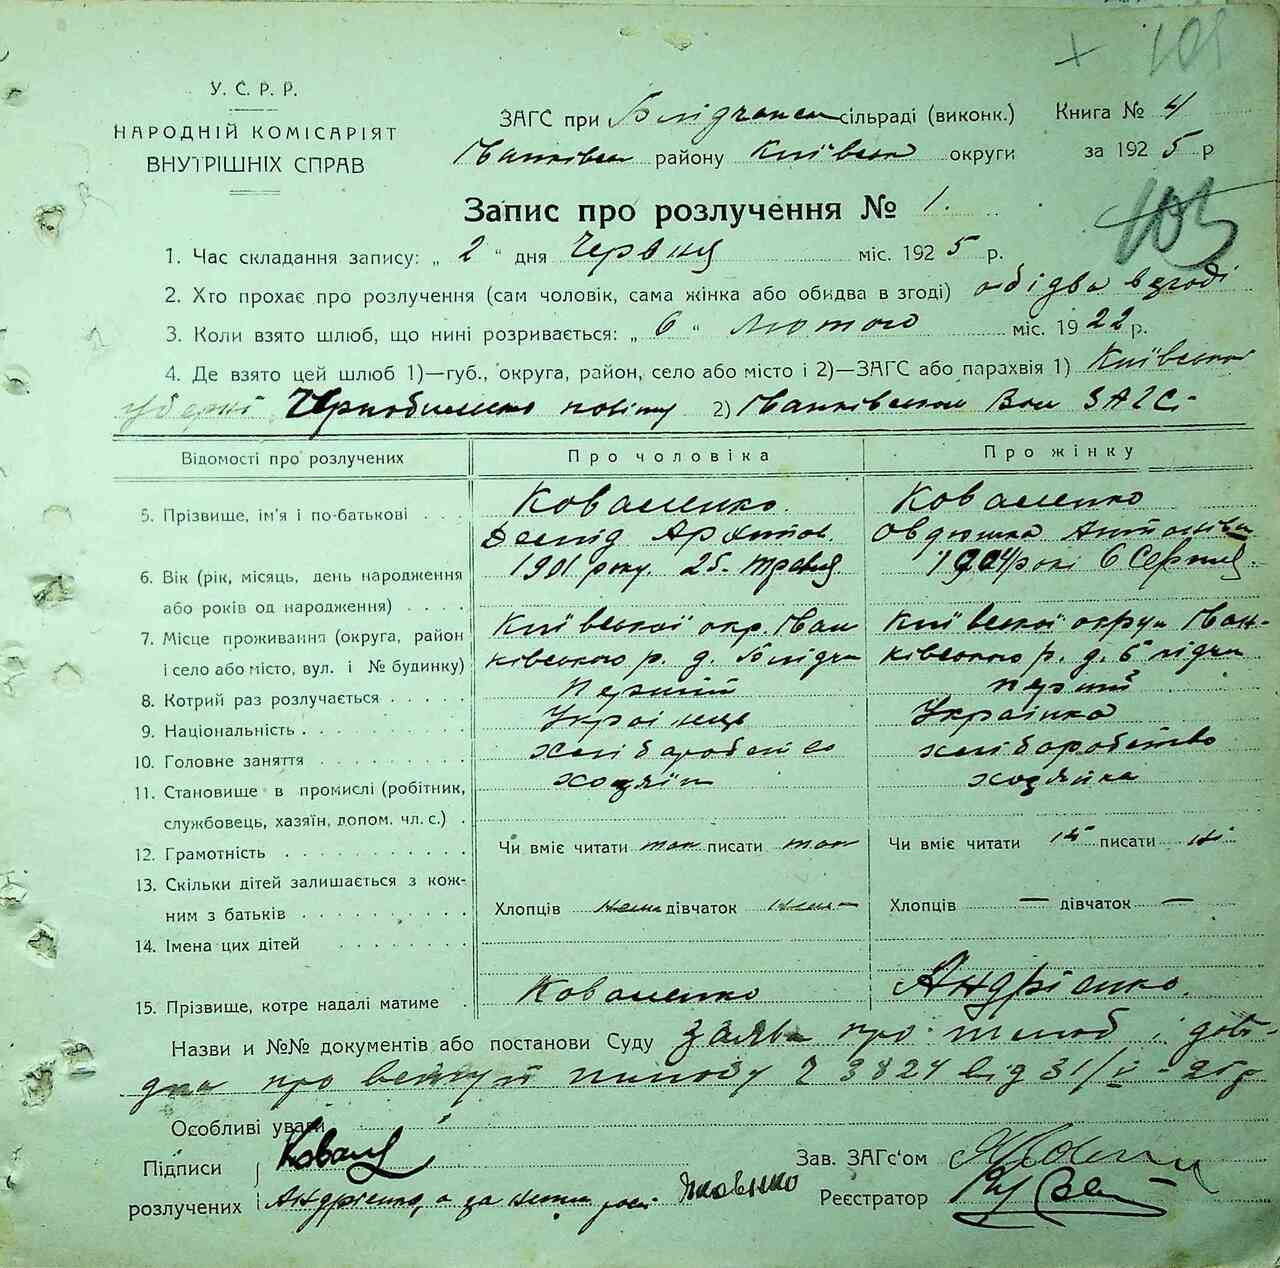 105
У. С. Р. Р.
НАРОДНІЙ КОМІСАРІЯТ
ВНУТРІШНІХ СПРАВ
ЗАГС при сільраді (виконк.) Книга № 4
району Київськ округи за 1925 р
Запис про розлучення № 1.
105
1. Час складання запису: „ 2 “ дня Червня міс. 1925 р.
2. Хто прохає про розлучення (сам чоловік, сама жінка або обидва в згоді) обідва в згоді
3. Коли взято шлюб, що нині розривається: „ 6 “ Лютого міс. 1922 р.
4. Де взято цей шлюб 1)—губ., округа, район, село або місто і 2)—ЗАГС або парахвія 1) Київської
губерні повіту 2) Іванківським Вол ЗАГСі-
Відомості про розлучених Про чоловіка Про жінку
5. Прізвище, ім'я і по-батькові Коваленко. Коваленко
6. Вік (рік, місяць, день народження 1901 року. 25. травня 1904 році 6 Серпня.
або років од народження)
7. Місце проживання (округа, район Київської окр. Іван Київської округи Іван-
і село або місто, вул. і № будинку) ківського р. д. ківського р. д.
8. Котрий раз розлучається перший перший
9. Національність Українець Українка
10. Головне заняття хліборобство хліборобство
11. Становище в промислі (робітник, хозяїн хозяйка
службовець, хазяїн, допом. чл. с.)
12. Грамотність Чи вміє читати так писати так Чи вміє читати ні писати ні
13. Скільки дітей залишається з кож-
ним з батьків Хлопців нема дівчаток нема Хлопців — дівчаток —
14. Імена цих дітей
15. Прізвище, котре надалі матиме Коваленко Андрієнко.
Назви и №№ документів або постанови Суду Заява про шлюб і дові-
дка про шлюбу 3824 від 31/
Особливі уваги
Підписи Зав. ЗАГс'ом
розлучених Андрієнко, а за Яковенко Реєстратор